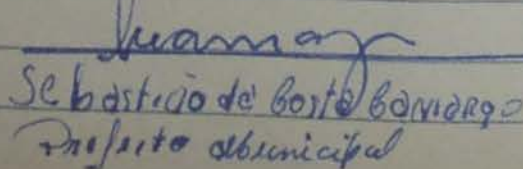 Sebastião de Costa Camargo
Prefeito Municipal